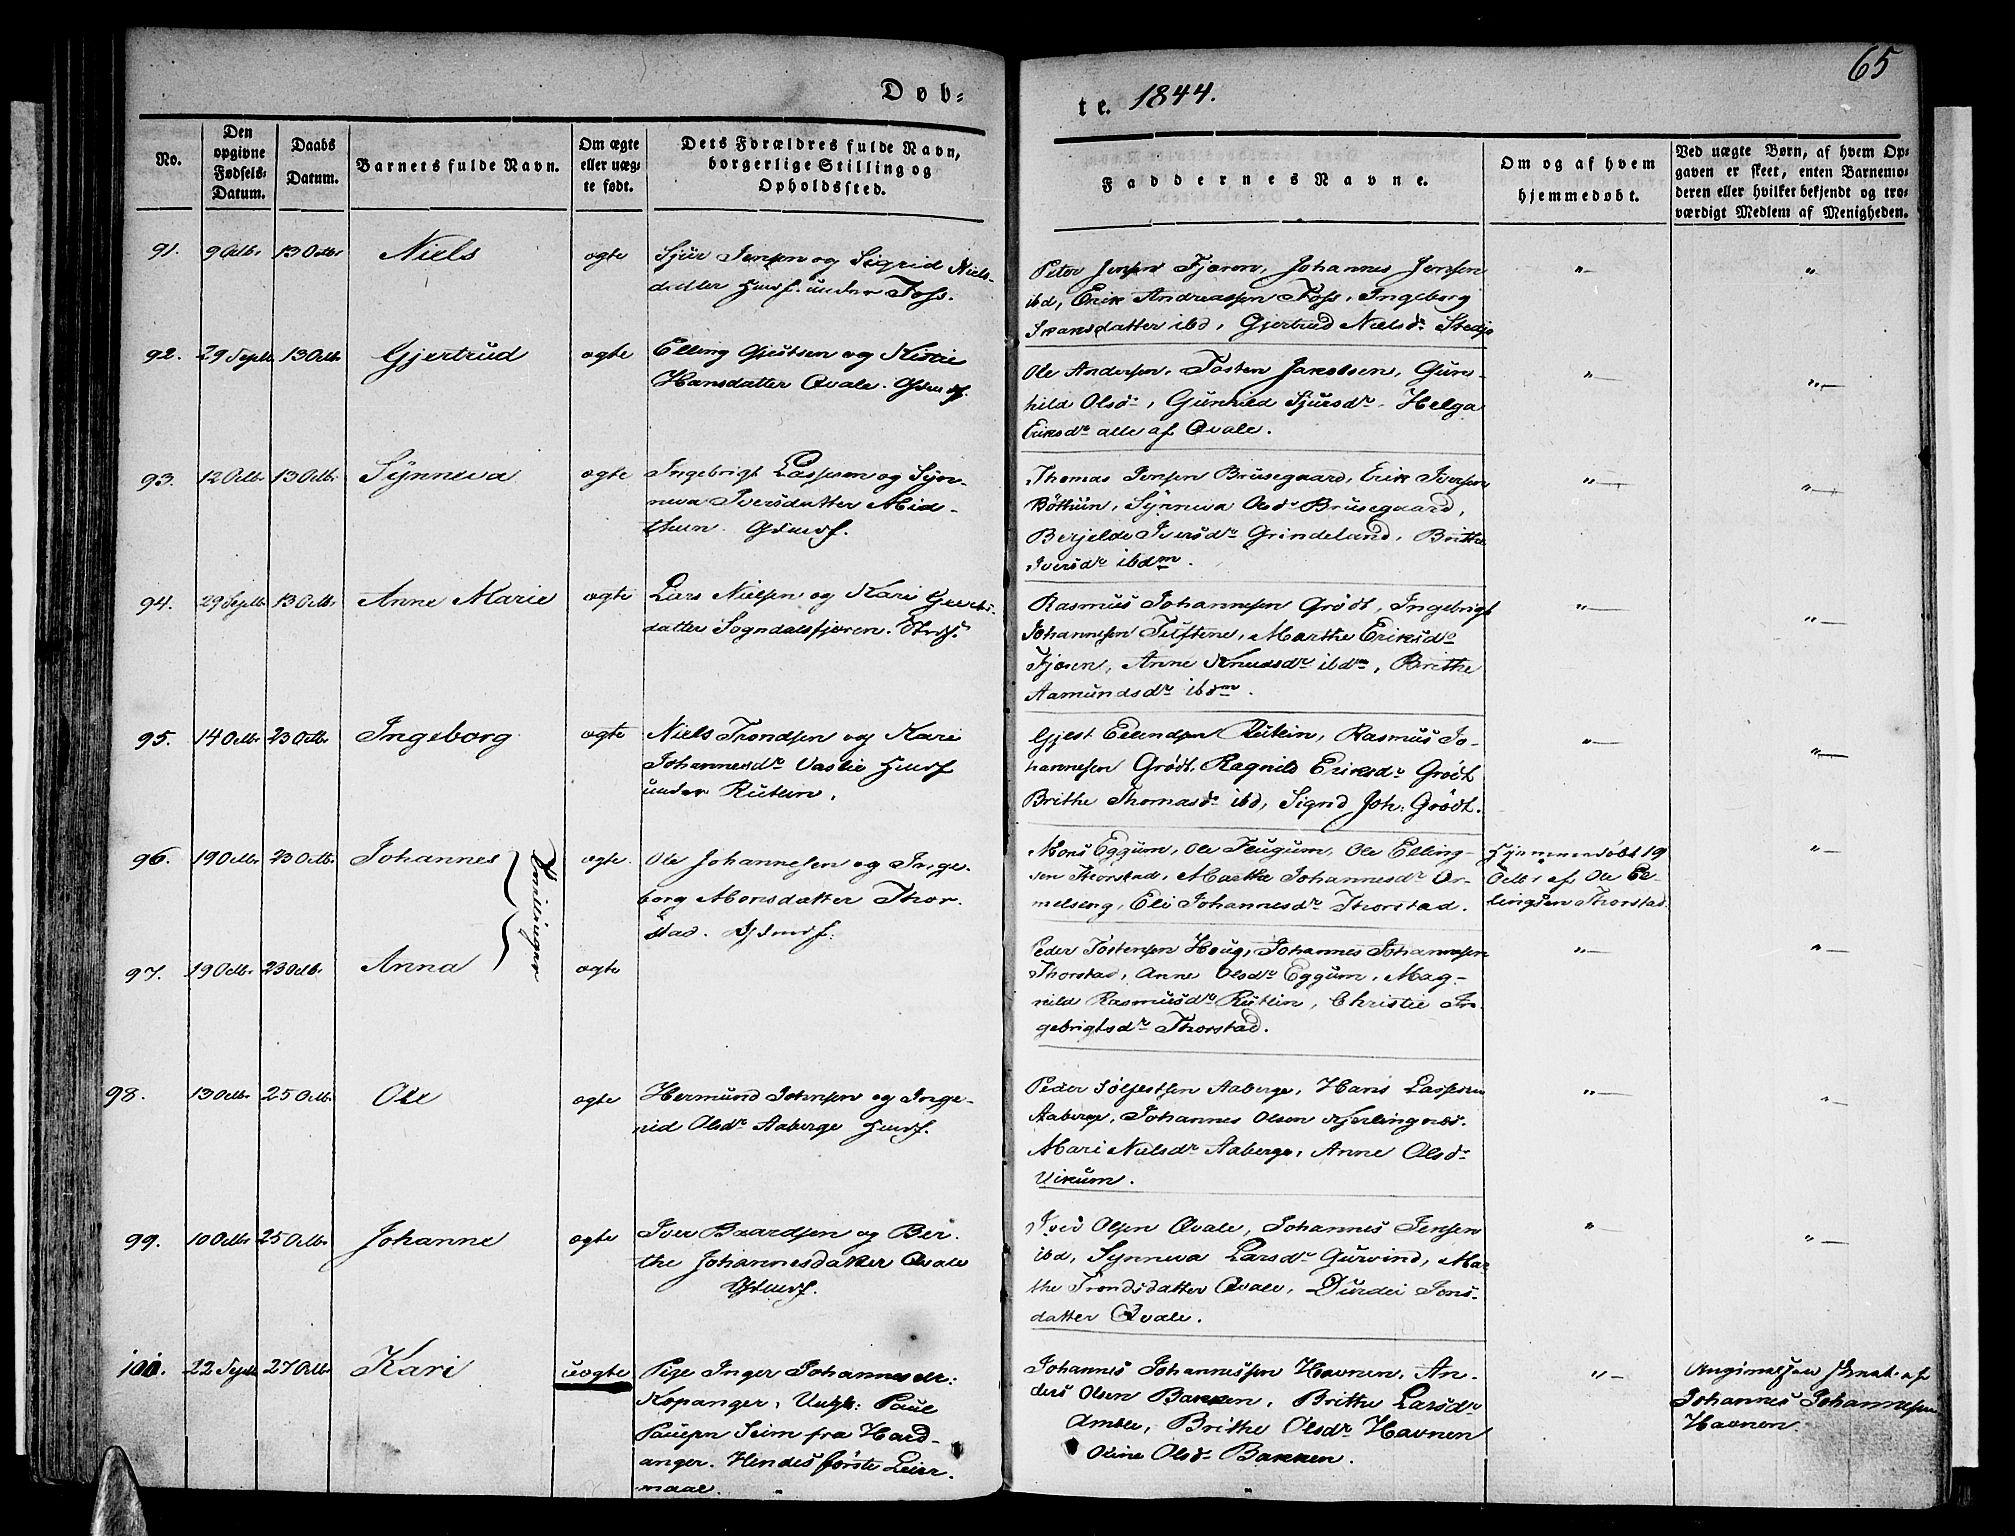 65
Døb-
te. 1844.
No.
Den
opgivne
Fødsels-
Datum.
Daabs
Datum.
Barnets fulde Navn.
Om ægte
eller uæg-
te født.
Dets Forældres fulde Navn,
borgerlige Stilling og
Opholdssted.
Faddernes Navne.
Om og af hvem
hjemmedøbt.
Ved uægte Børn, af hvem Op-
gaven er skeet, enten Barnemo-
deren eller hvilket bekjendt og tro-
værdigt Medlem af Menigheden.
91. 9 Octbr 13 Octbr Niels ægte
Sjur Jensen og Sigrid Niels-
datter Huusf. under Foss.
Peter Jensen Fjæren, Johannes Jensen
ibd, Erik Andreassen Foss, Ingeborg
Ivarsdatter ibd, Gjertrud Nielsdr Stedje
92. 29 Septb 13 Octbr Gjertrud ægte
Elling Gjestsen og
Hansdatter Qvale. Gdmdf.
Ole Andersen, Tosten Jakobsen, Gun-
hild Olsdr, Gunhild Sjursdr, Helga
Eriksdr alle af Qvale.
93. 12 Octbr 13 Octbr Synneva ægte
Ingebrigt Lassesen og Syn-
neva Iversdatter Mid-
thun. Gdmdf.
Thomas Jensen Brusegaard, Erik Iversen
Bøthun, Synneva Olsdr Brusegaard,
Berjelde Iversdr Grindeland, Brithe
Iversdr ibdm.
94. 29 Septb 13 Octbr Anne Marie ægte
Lars Nielsen og Kari
datter Sogndalsfjæren.
Rasmus Johannesen Grødt, Ingebrigt
Johannesen Tuftene, Marthe Eriksdr
Fjæren, Anne Knudsdr ibdm, Brithe
Aamundsdr ibdm.
95. 14 Octbr 23 Octbr Ingeborg ægte
Niels Trondsen og Kari
Johannesdr Huusf
under Rutlin.
Gjest Ellendsen Rutlin, Rasmus Jo-
hannesen Grødt, Ragnild Eriksdr Grødt
Brithe Thomasdr ibd, Sigrid Joh: Grødt.
96. 19 Octbr 23 Octbr Johannes ægte
Tvillinger
Ole Johannesen og Inge-
borg Monsdatter Thor-
stad. Gdmdf.
Mons Eggum, Ole Flugum, Ole Elling-
sen Thorstad, Marthe Johannesdr Or-
melseng, Eli Johannesdr Thorstad.
Hjemmedøbt 19
Octbr af Ole El-
lingsen Thorstad
97. 19 Octbr 23 Octbr Anna ægte
Peder Tostensen Houg, Johannes Johannesen
Thorstad, Anne Olsdr Eggum, Mag-
nild Rasmusdr Rutlin, Christie In-
gebrigtsdr Thorstad.
98. 13 Octbr 25 Octbr Ole ægte
Hermund Johnsen og Inge-
rid Olsdr Aaberge Huusf.
Peder Sølfestsen Aaberge, Hans Lassesen
Aaberge, Johannes Olsen Kjerlingnæs.
Mari Nielsdr Aaberge, Anne Olsdr
Vikum.
99. 10 Octbr 25 Octbr Johanne ægte
Iver Baardsen og Ber-
the Johannesdatter Qvale
Gdmdf.
Olsen Qvale, Johannes Jensen
ibd, Synneva Larsdr Gurvind, Mar
the Trondsdatter Qvale, Durdei Jons-
datter Qvale.
100. 22 Septb 27 Octbr Kari uægte
Pige Inger Johannesdr:
Kopanger, Ungk: Paul
Paulsen Seim fra Hard-
anger. Hendes første Leier-
maal.
Johannes Johannessen Havnen, An-
ders Olsen Bakken, Brithe Larsdr
Amble, Brithe Olsdr Havnen
Oline Olsdr Bakken.
Angivelsen skeet af
Johannes Johannesen
Havnen.